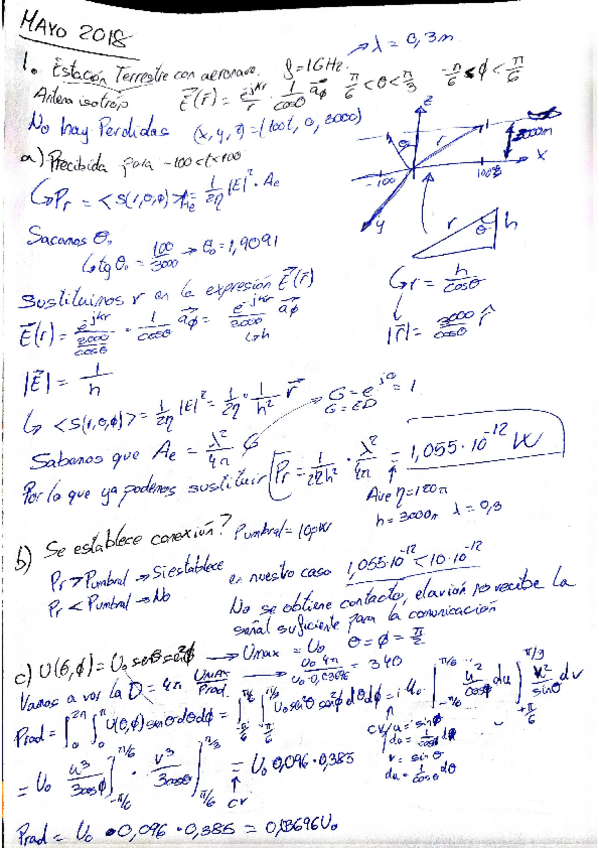 MAYO 2018
→ λ = 0,3m
1. Estación Terrestre con aeronave. f=1GHz.
Antena isotrop E(r) = e^-jkr/r · 1/cosθ a_ϕ π/6 < θ < π/3 -π/6 < ϕ < π/6
No hay Perdidas (x, y, z) = (100t, 0, 3000)
a) Precibida para -100<t<100
z
θ r 3000m
-100 100 x
y
↳ Pr = <S(r,θ,ϕ)> Ae = 1/2η |E|² · Ae
r θ h
Sacamos θ₀
↳ tg θ₀ = 100/3000 → θ₀ = 1,9091
↳ r = h/cosθ
Sustituimos r en la expresión E(r)
E(r) = e^-jkr/(3000/cosθ) · 1/cosθ a_ϕ = e^-jkr/3000 a_ϕ
↳h
|r| = 3000/cosθ r̂
|E| = 1/h
↳ <S(r,θ,ϕ)> = 1/2η |E|² = 1/2η · 1/h² r
→ G = e^jθ = 1
G = ED
Sabemos que Ae = λ²/4π G
Por lo que ya podemos sustituir Pr = 1/2ηh² · λ²/4π = 1,055·10^-12 W
η=120π
h = 3000m λ = 0,3
b) Se establece conexión? Pumbral = 10pW
Pr > Pumbral → Si establece
Pr < Pumbral → No
en nuestro caso 1,055·10^-12 < 10·10^-12
No se obtiene contacto, el avión no recibe la
señal suficiente para la comunicación
c) U(θ,ϕ) = U₀ senθ sen²ϕ → Umax = U₀ θ = ϕ = π/2
Vamos a ver la D = 4π Umax/Prad. → U₀ 4π/U₀·0,03696 = 340
Prad = ∫₀^2π ∫₀^π U(θ,ϕ) senθ dθ dϕ = ∫ ∫ U₀ sen²θ sen²ϕ dθ dϕ = U₀ ∫_-π/6^π/6 u²/cosϕ du ∫_π/6^π/3 v²/senθ dv
CV/u = senϕ
du = 1/cosϕ dϕ
v = senθ
du = 1/cosθ dθ
= U₀ u³/3cosϕ ]_-π/6^π/6 · v³/3cosθ ]_π/6^π/3 = U₀ 0,096 · 0,385
CV
Prad = U₀ · 0,096 · 0,385 = 0,03696U₀